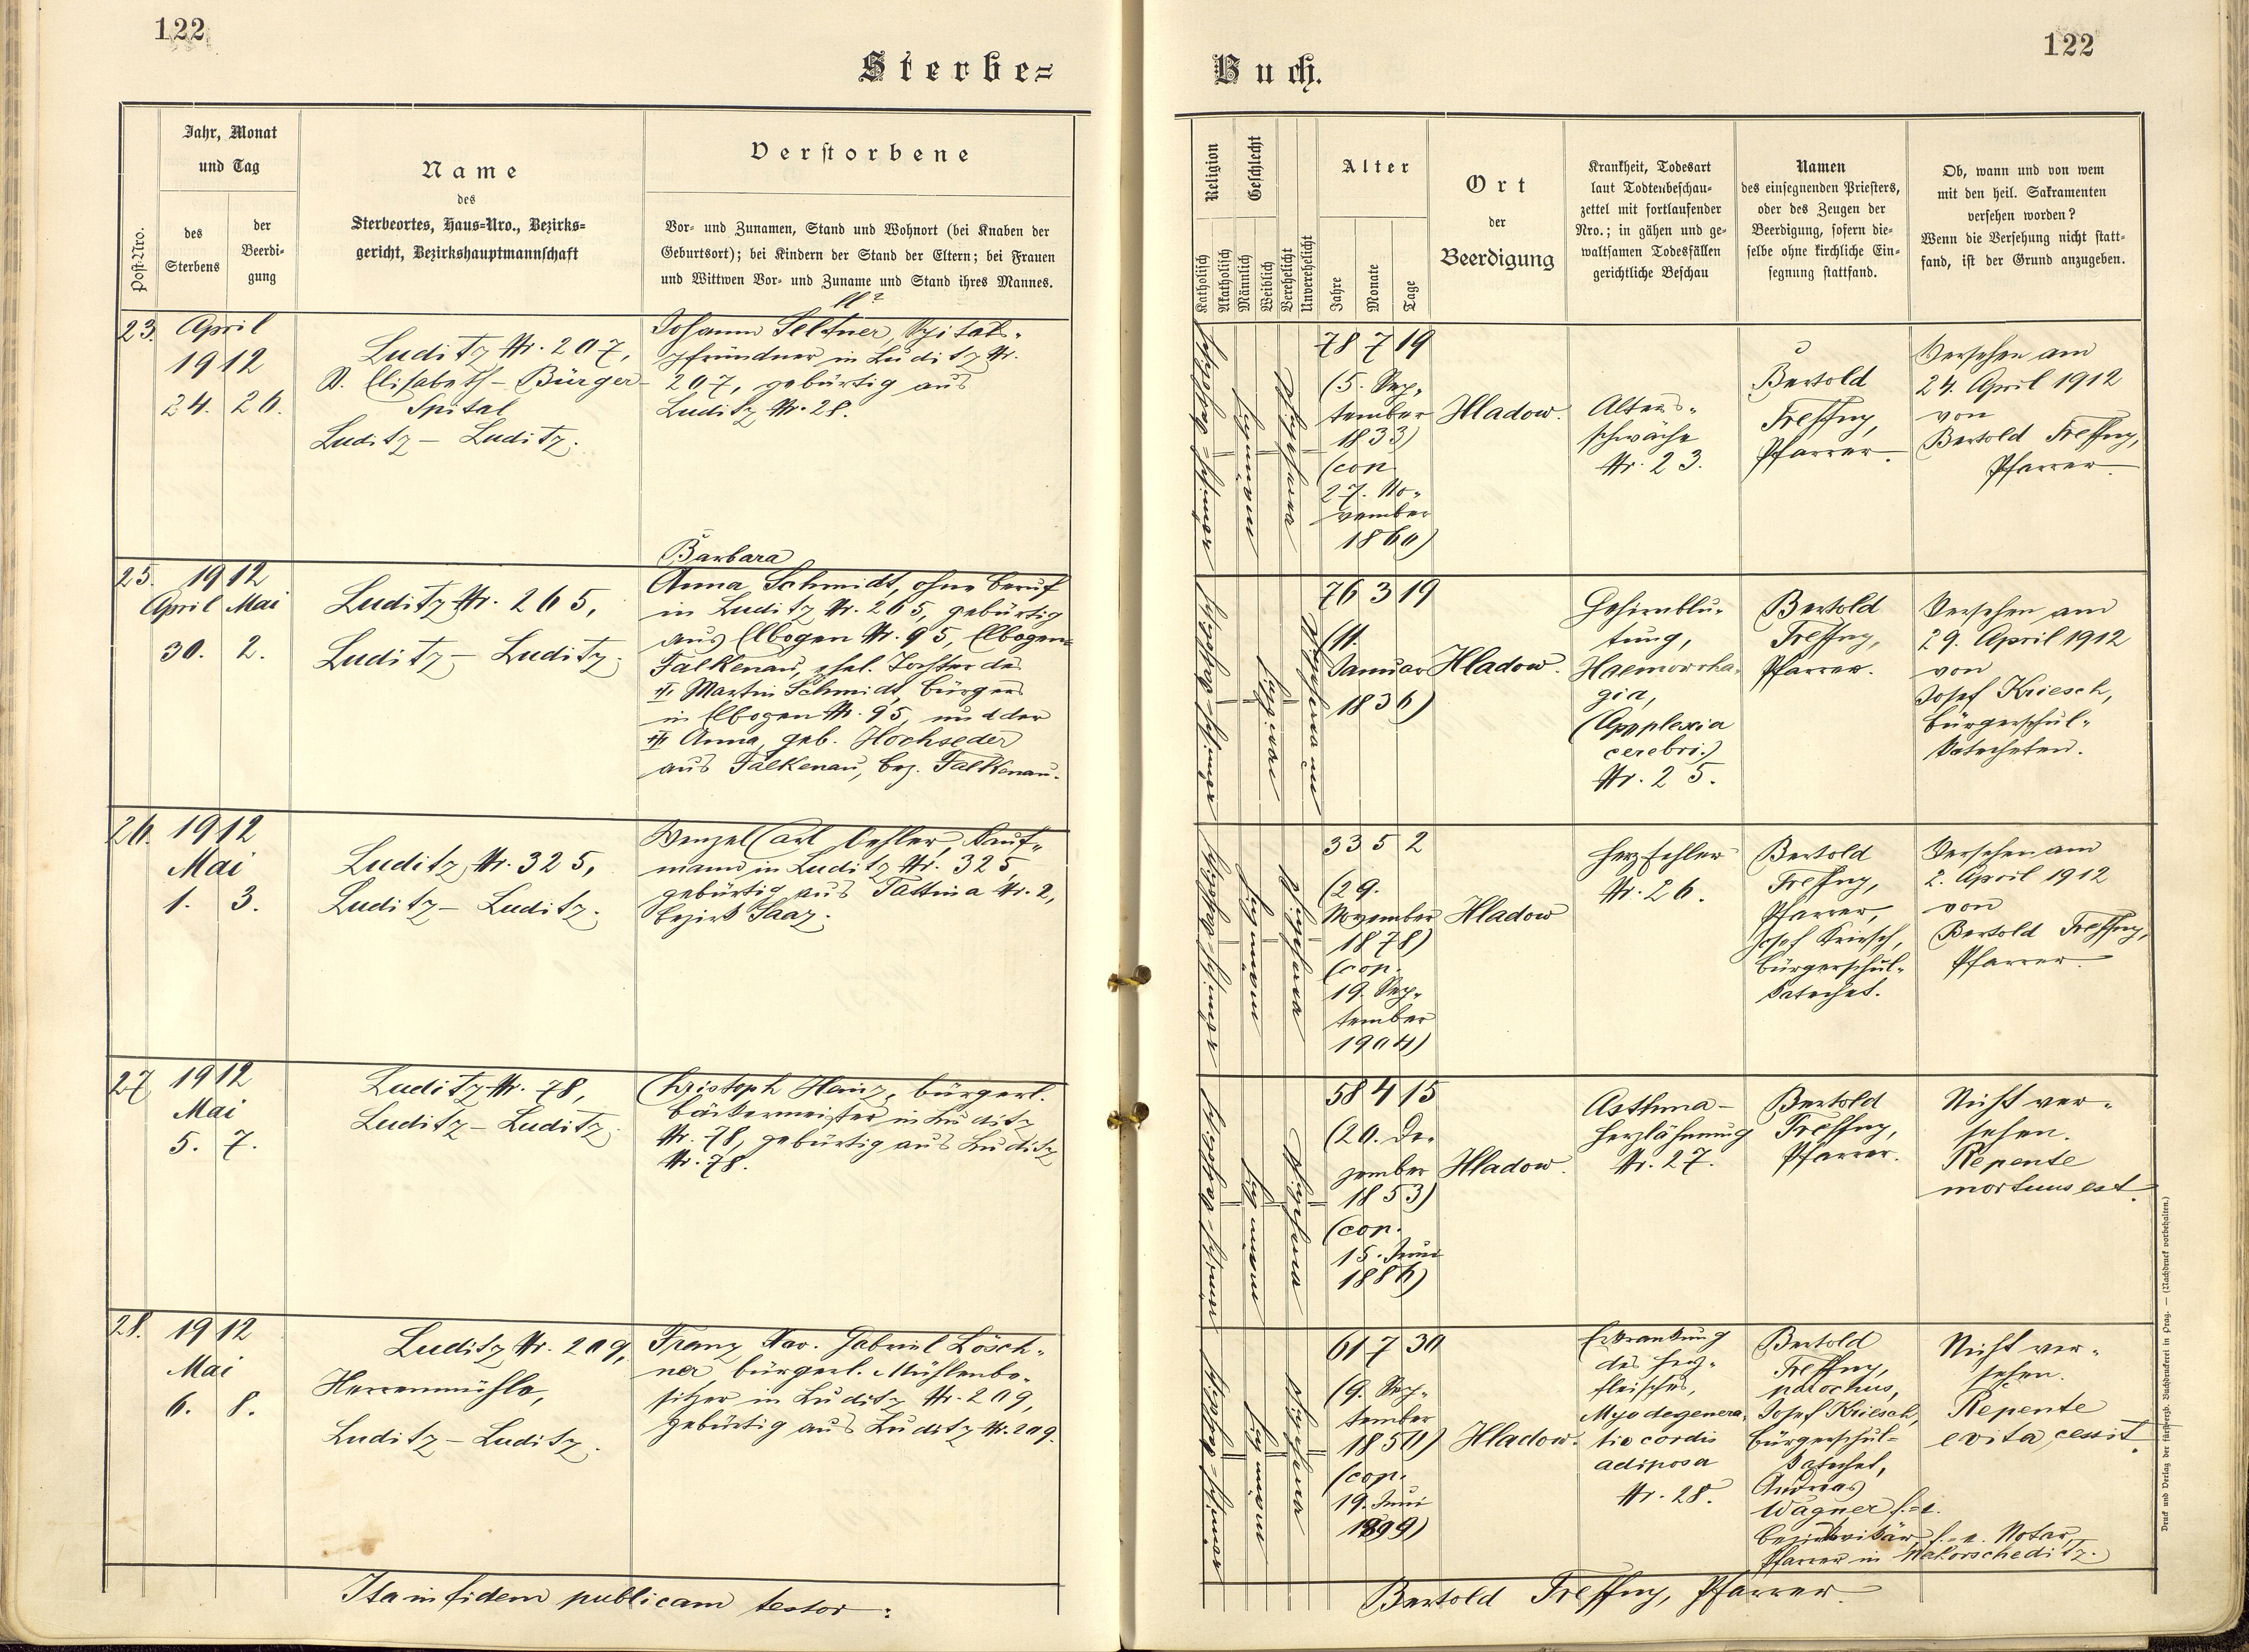 122
122
Sterbe=
Buch.
Post-Nro.
Jahr, Monat
und Tag
des
Sterbens
der
Beerdi-
gung
Name
des
Sterbeortes, Haus-Nro., Bezirks-
gericht, Bezirkshauptmannschaft
Verstorbene
Vor- und Zunamen, Stand und Wohnort (bei Knaben der
Geburtsort); bei Kindern der Stand der Eltern; bei Frauen
und Wittwen Vor- und Zuname und Stand ihres Mannes.
Religion
Katholisch
Akatholisch
Geschlecht
Männlich
Weiblich
Verehelicht
Unverehelicht
Alter
Jahre
Monate
Tage
Ort
der
Beerdigung
Krankheit, Todesart
laut Todtenbeschau-
zettel mit fortlaufender
Nro.; in gähen und ge-
waltsamen Todesfällen
gerichtliche Beschau
Namen
des einsegnenden Priesters,
oder des Zeugen der
Beerdigung, sofern die-
selbe ohne kirchliche Ein-
segnung stattfand.
Ob, wann und von wem
mit den heil. Sakramenten
versehen worden?
Wenn die Versehung nicht statt-
fand, ist der Grund anzugeben.
23.
April
1912
24. 26.
Luditz Nr. 207,
St. Elisabeth-Bürger-
Spital
Luditz - Luditz.
ll?
Johann Seltner, Spitals-
pfründner in Luditz Nr.
207, gebürtig aus
Luditz Nr. 28.
78 7 19
(5. Sep-
tember
1833)
(cop.
27. No-
vember
1860)
Hladow.
Alters-
schwäche
Nr. 23.
Bertold
Treffny,
Pfarrer.
Versehen am
24. April 1912
von
Bertold Treffny,
Pfarrer.
25.
1912
April Mai
30. 2.
Luditz Nr. 265,
Luditz - Luditz.
Barbara
Anna Schmidt, ohne Beruf
in Luditz Nr. 265, gebürtig
aus Elbogen Nr. 95, Elbogen-
Falkenau, ehel. Tochter des
Martin Schmidt, Bürgers
in Elbogen Nr. 95, und der
Anna, geb. Hochseder
aus Falkenau, Bez. Falkenau.
76 3 19
(11.
Januar
1836)
Hladow.
Gehirnblu-
tung,
Haemorrha-
gia,
(Apoplexia
cerebri.)
Nr. 25.
Bertold
Treffny,
Pfarrer.
Versehen am
29. April 1912
von
Josef Kriesch,
Bürgerschul-
katecheten.
26.
1912
Mai
1. 3.
Luditz Nr. 325,
Luditz - Luditz.
Wenzel Carl Oehler, Kauf-
mann in Luditz Nr. 325,
gebürtig aus Tattina Nr. 2,
Bezirk Saaz.
33 5 2
(29.
November
1878)
(cop.
19. Sep-
tember
1904)
Hladow
Herzfehler
Nr. 26.
Bertold
Treffny,
Pfarrer,
Josef Kriesch,
Bürgerschul-
katechet.
Versehen am
2. April 1912
von
Bertold Treffny,
Pfarrer.
27
1912
Mai
5. 7.
Luditz Nr. 78,
Luditz - Luditz.
Christoph Heinz, bürgerl.
Bäckermeister in Luditz
Nr. 78, gebürtig aus Luditz
Nr. 78.
58 4 15
(20. De-
zember
1853)
(cop.
15. Juni
1886)
Hladow.
Asthma -
Herzlähmung
Nr. 27.
Bertold
Treffny,
Pfarrer.
Nicht ver-
sehen.
Repente
mortuus est.
28.
1912
Mai
6. 8.
Luditz Nr. 209,
Herrenmühle,
Luditz - Luditz.
Franz Xav. Gabriel Lösch-
ner, bürgerl. Mühlenbe-
sitzer in Luditz Nr. 209,
gebürtig aus Luditz Nr. 209.
61 7 30
(9. Sep-
tember
1850)
(cop.
19. Juni
1899)
Hladow.
Erkrankung
des Herz-
fleisches,
Myodegenera-
tio cordis
adiposa
Nr. 28.
Bertold
Treffny,
parochus,
Josef Kriesch,
Bürgerschul-
katechet,
Andreas
Wagner f.-e.
Bezirksvikär, f.-e. Notar,
Pfarrer in Waltorscheditz.
Nicht ver-
sehen.
Repente
e vita cessit.
Ita in fidem publicam testor:
Bertold Treffny, Pfarrer.
Druck und Verlag der fürsterzb. Buchdruckerei in Prag. — (Nachdruck vorbehalten.)